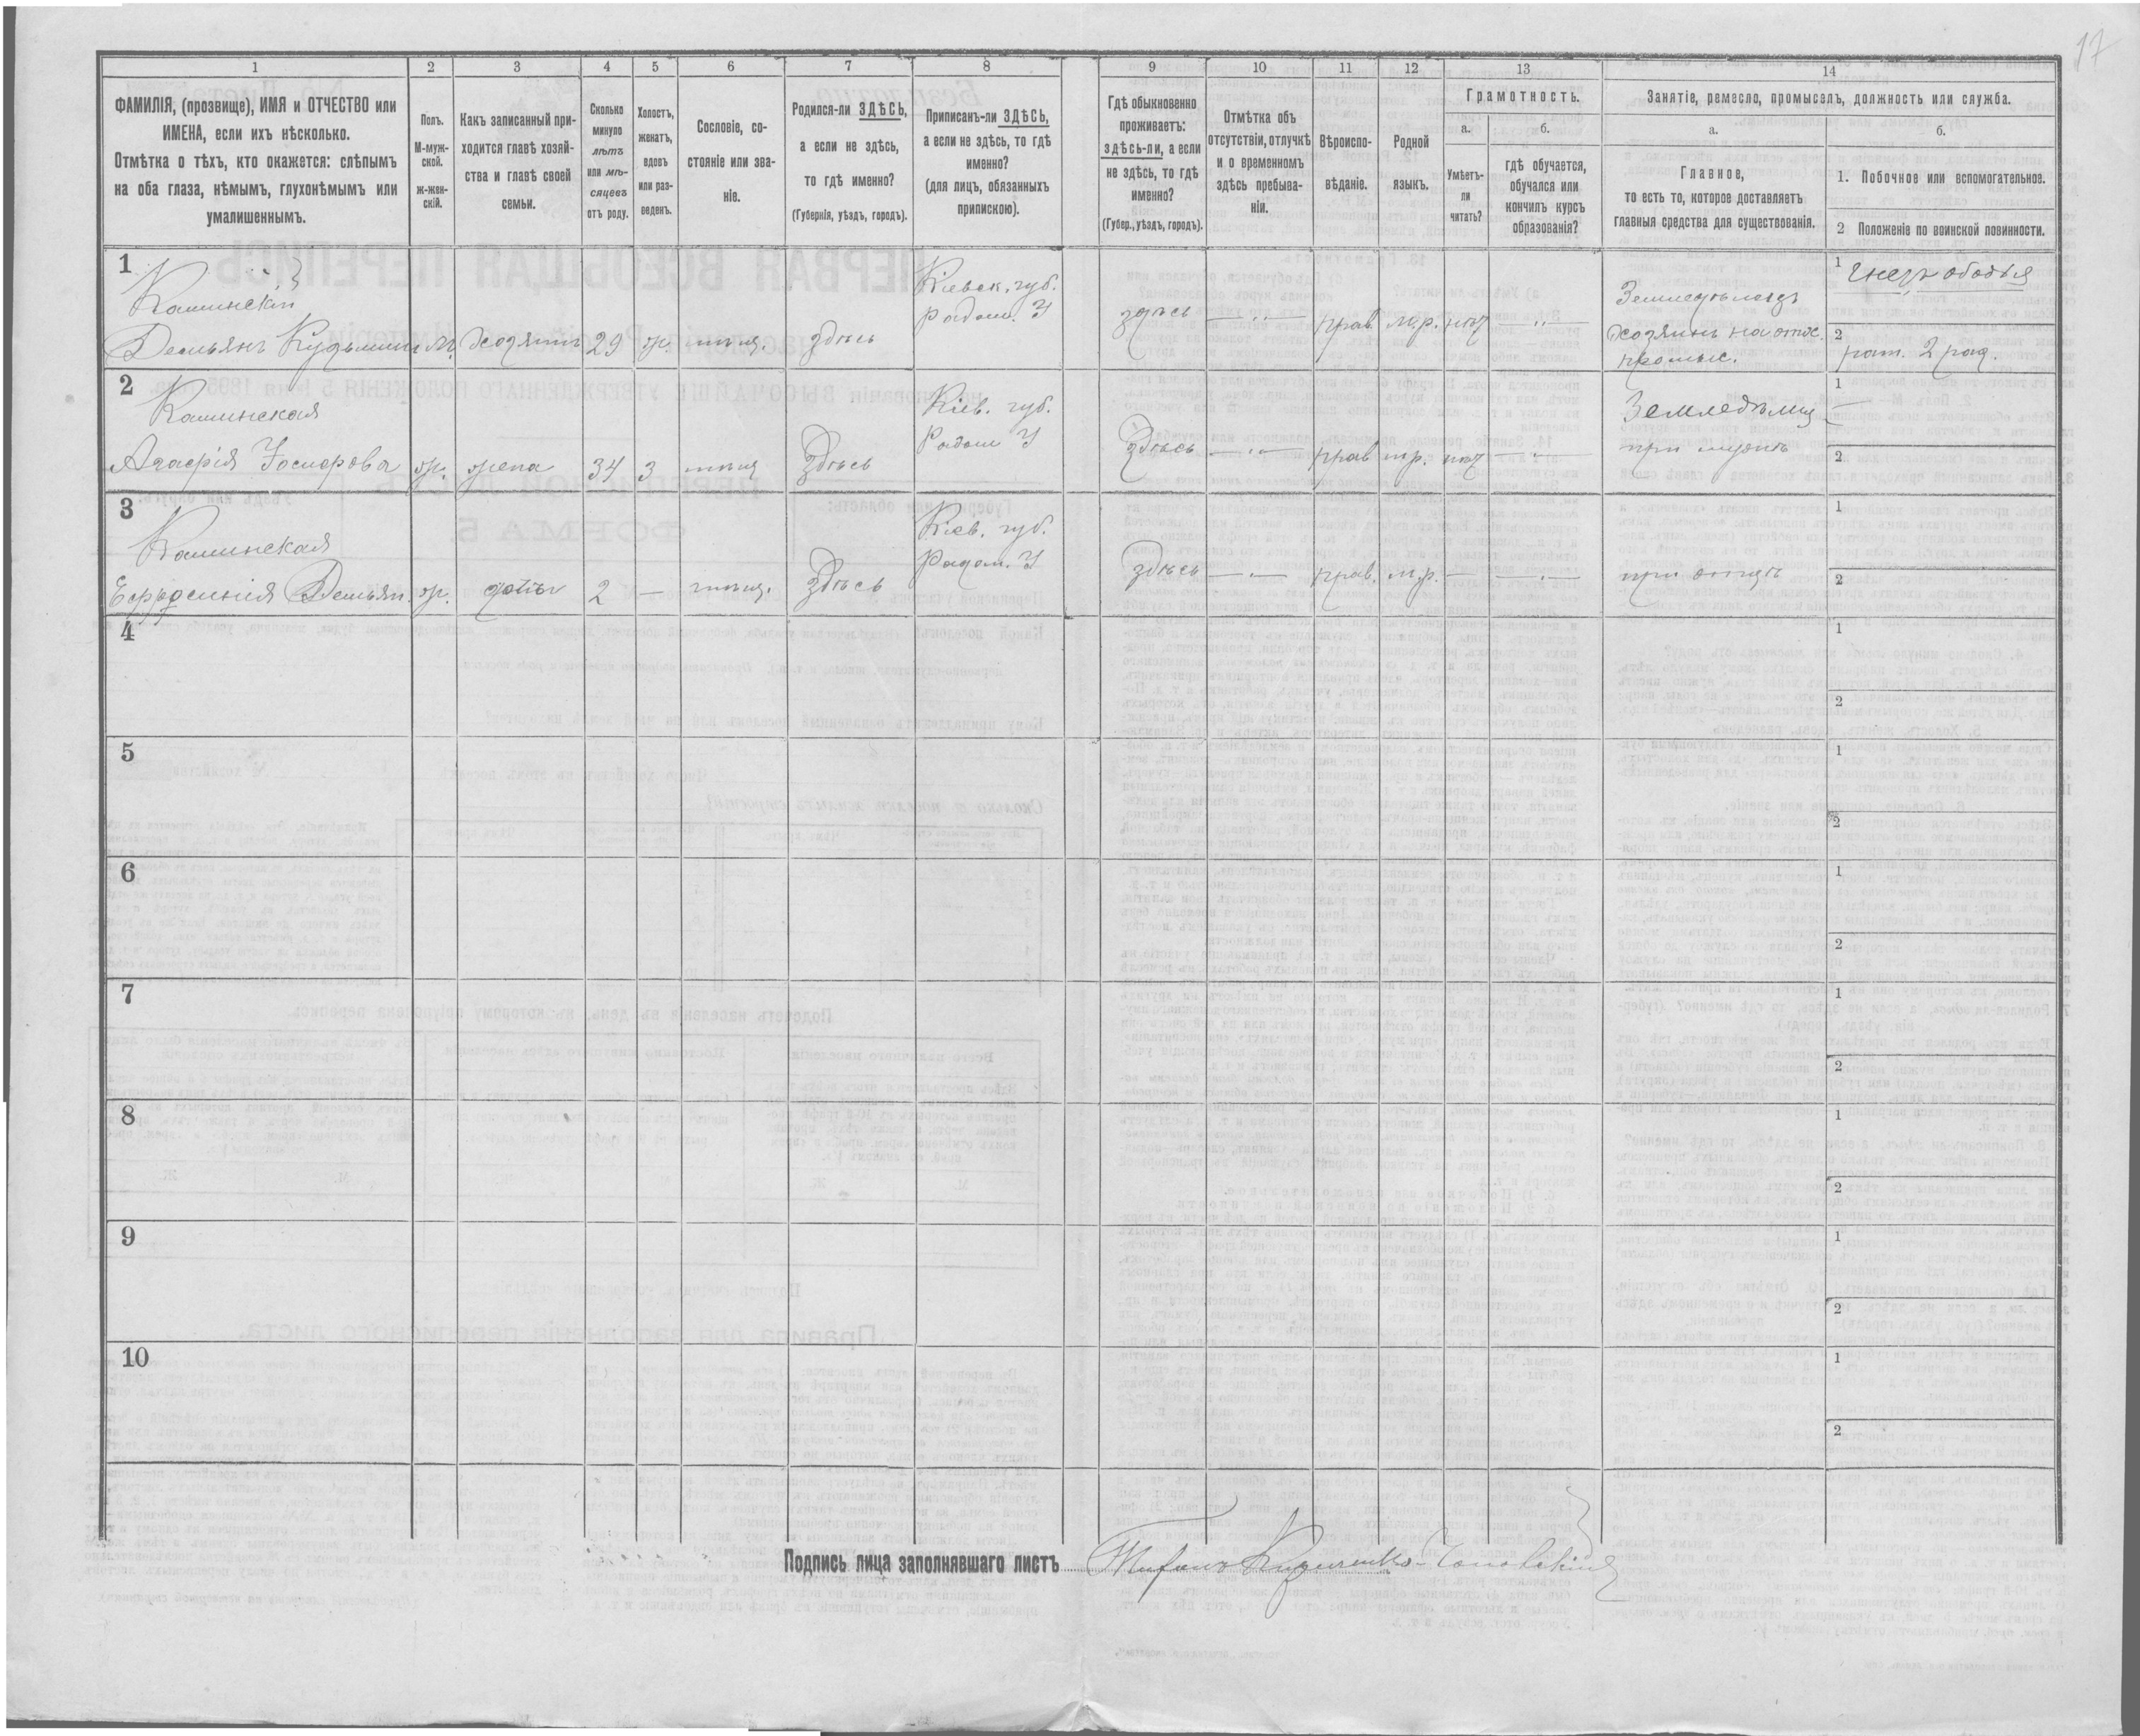 17
1 2 3 4 5 6 7 8 9 10 11 12 13 14
ФАМИЛІЯ, (прозвище), ИМЯ и ОТЧЕСТВО или
ИМЕНА, если ихъ нѣсколько.
Отмѣтка о тѣхъ, кто окажется: слѣпымъ
на оба глаза, нѣмымъ, глухонѣмымъ или
умалишеннымъ.
Полъ.
М-муж-
ской.
ж-жен-
скій.
Какъ записанный при-
ходится главѣ хозяй-
ства и главѣ своей
семьи.
Сколько
минуло
лѣтъ
или мѣ-
сяцевъ
отъ роду.
Холостъ,
женатъ,
вдовъ
или раз-
веденъ.
Сословіе, со-
стояніе или зва-
ніе.
Родился-ли ЗДѢСЬ,
а если не здѣсь,
то гдѣ именно?
(Губернія, уѣздъ, городъ).
Приписанъ-ли ЗДѢСЬ,
а если не здѣсь, то гдѣ
именно?
(для лицъ, обязанныхъ
припискою).
Гдѣ обыкновенно
проживаетъ:
здѣсь-ли, а если
не здѣсь, то гдѣ
именно?
(Губер., уѣздъ, городъ).
Отмѣтка объ
отсутствіи, отлучкѣ
и о временномъ
здѣсь пребыва-
ніи.
Вѣроиспо-
вѣданіе.
Родной
языкъ.
Грамотность.
а.
Умѣетъ-
ли
читать?
б.
гдѣ обучается,
обучался или
кончилъ курсъ
образованія?
Занятіе, ремесло, промыселъ, должность или служба.
а.
Главное,
то есть то, которое доставляетъ
главныя средства для существованія.
б.
1. Побочное или вспомогательное.
2 Положеніе по воинской повинности.
1
Каминскій
Кіевск. губ.
Радом. У
Демьянъ Кузьмин м. хозяинъ 29 ж. здѣсь
здѣсь — „ — прав. м.р. нѣт — „ —
Земледѣлецъ
хозяинъ на
промыс.
1
2
рат. 2 раз.
2
Каминская
Кіев. губ.
Радом У
Агафія Іосифова ж. жена 34 з здѣсь
здѣсь — „ — прав м.р. нѣт — „ —
Земледѣлиц
при мужѣ
1 —
2
3
Каминская
Кіев. губ.
Радом. У
Евфросинія Демьян. ж. дочь 2 — здѣсь
здѣсь — „ — прав. м.р. — — „ —
при отцѣ
1
2
4
1
2
5
1
2
6
1
2
7
1
2
8
1
2
9
1
2
10
1
2
Подпись лица заполнявшаго листъ